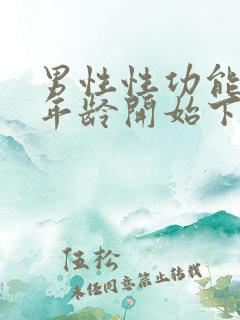 男性性功能
年龄開始下
伍松
未经同意禁止转载